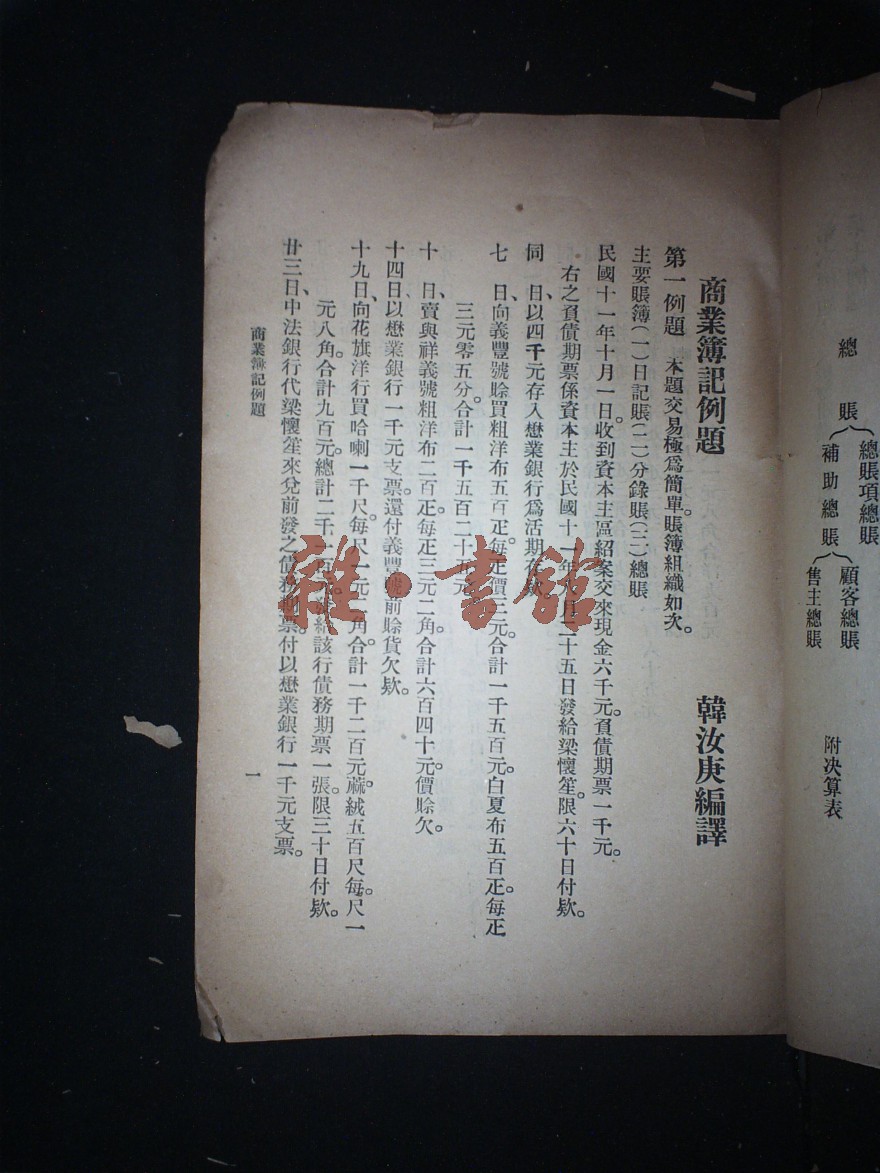 總賬
總賬項總賬
補助總賬
顧客總賬
售主總賬
附決算表
商業簿記例題
韓汝庚編譯
第一例題 本題交易極爲簡單。賬簿組織如次。
主要賬簿(一)日記賬(二)分錄賬(三)總賬
民國十一年十月一日收到資本主區紹案交來現金六千元。負債期票一千元。
右之負債期票係資本主於民國十一年九月二十五日發給梁懷笙。限六十日付欵。
同 日、以四千元存入懋業銀行爲活期存欵。
七 日、向義豐號賒買粗洋布五百疋。每疋價三元。合計一千五百元。白夏布五百疋。每疋
三元零五分。合計一千五百二十五元。
十 日、賣與祥義號粗洋布二百疋。每疋三元二角。合計六百四十元。價賒欠。
十四日、以懋業銀行一千元支票。還付義豐號前賒貨欠欵。
十九日、向花旗洋行買哈喇一千尺。每尺一元二角。合計一千二百元。蔴絨五百尺。每尺一
元八角。合計九百元。總計二千一百元。發給該行債務期票一張。限三十日付欵。
廿三日、中法銀行代梁懷笙來兌前發之債務期票。付以懋業銀行一千元支票。
商業簿記例題
一
雜·書館